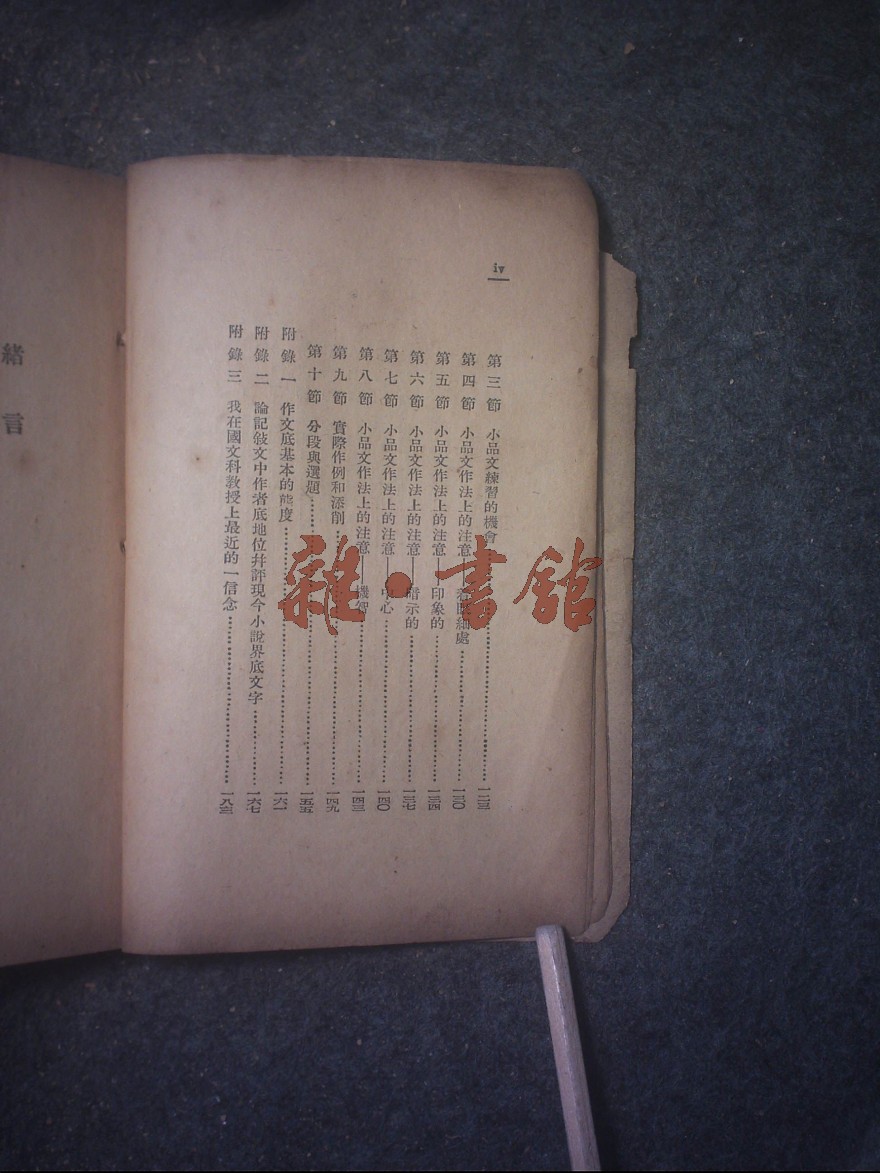 iv
第三節 小品文練習的機會………一二三
第四節 小品文作法上的注意——着眼細處………一三〇
第五節 小品文作法上的注意——印象的………一三四
第六節 小品文作法上的注意——暗示的………一三七
第七節 小品文作法上的注意——中心………一四〇
第八節 小品文作法上的注意——機智………一四三
第九節 實際作例和添削………一四九
第十節 分段與選題………一五五
附錄一 作文底基本的態度………一六一
附錄二 論記敍文中作者底地位幷評現今小說界底文字………一六七
附錄三 我在國文科教授上最近的一信念………一八三
緒言
雜·書館